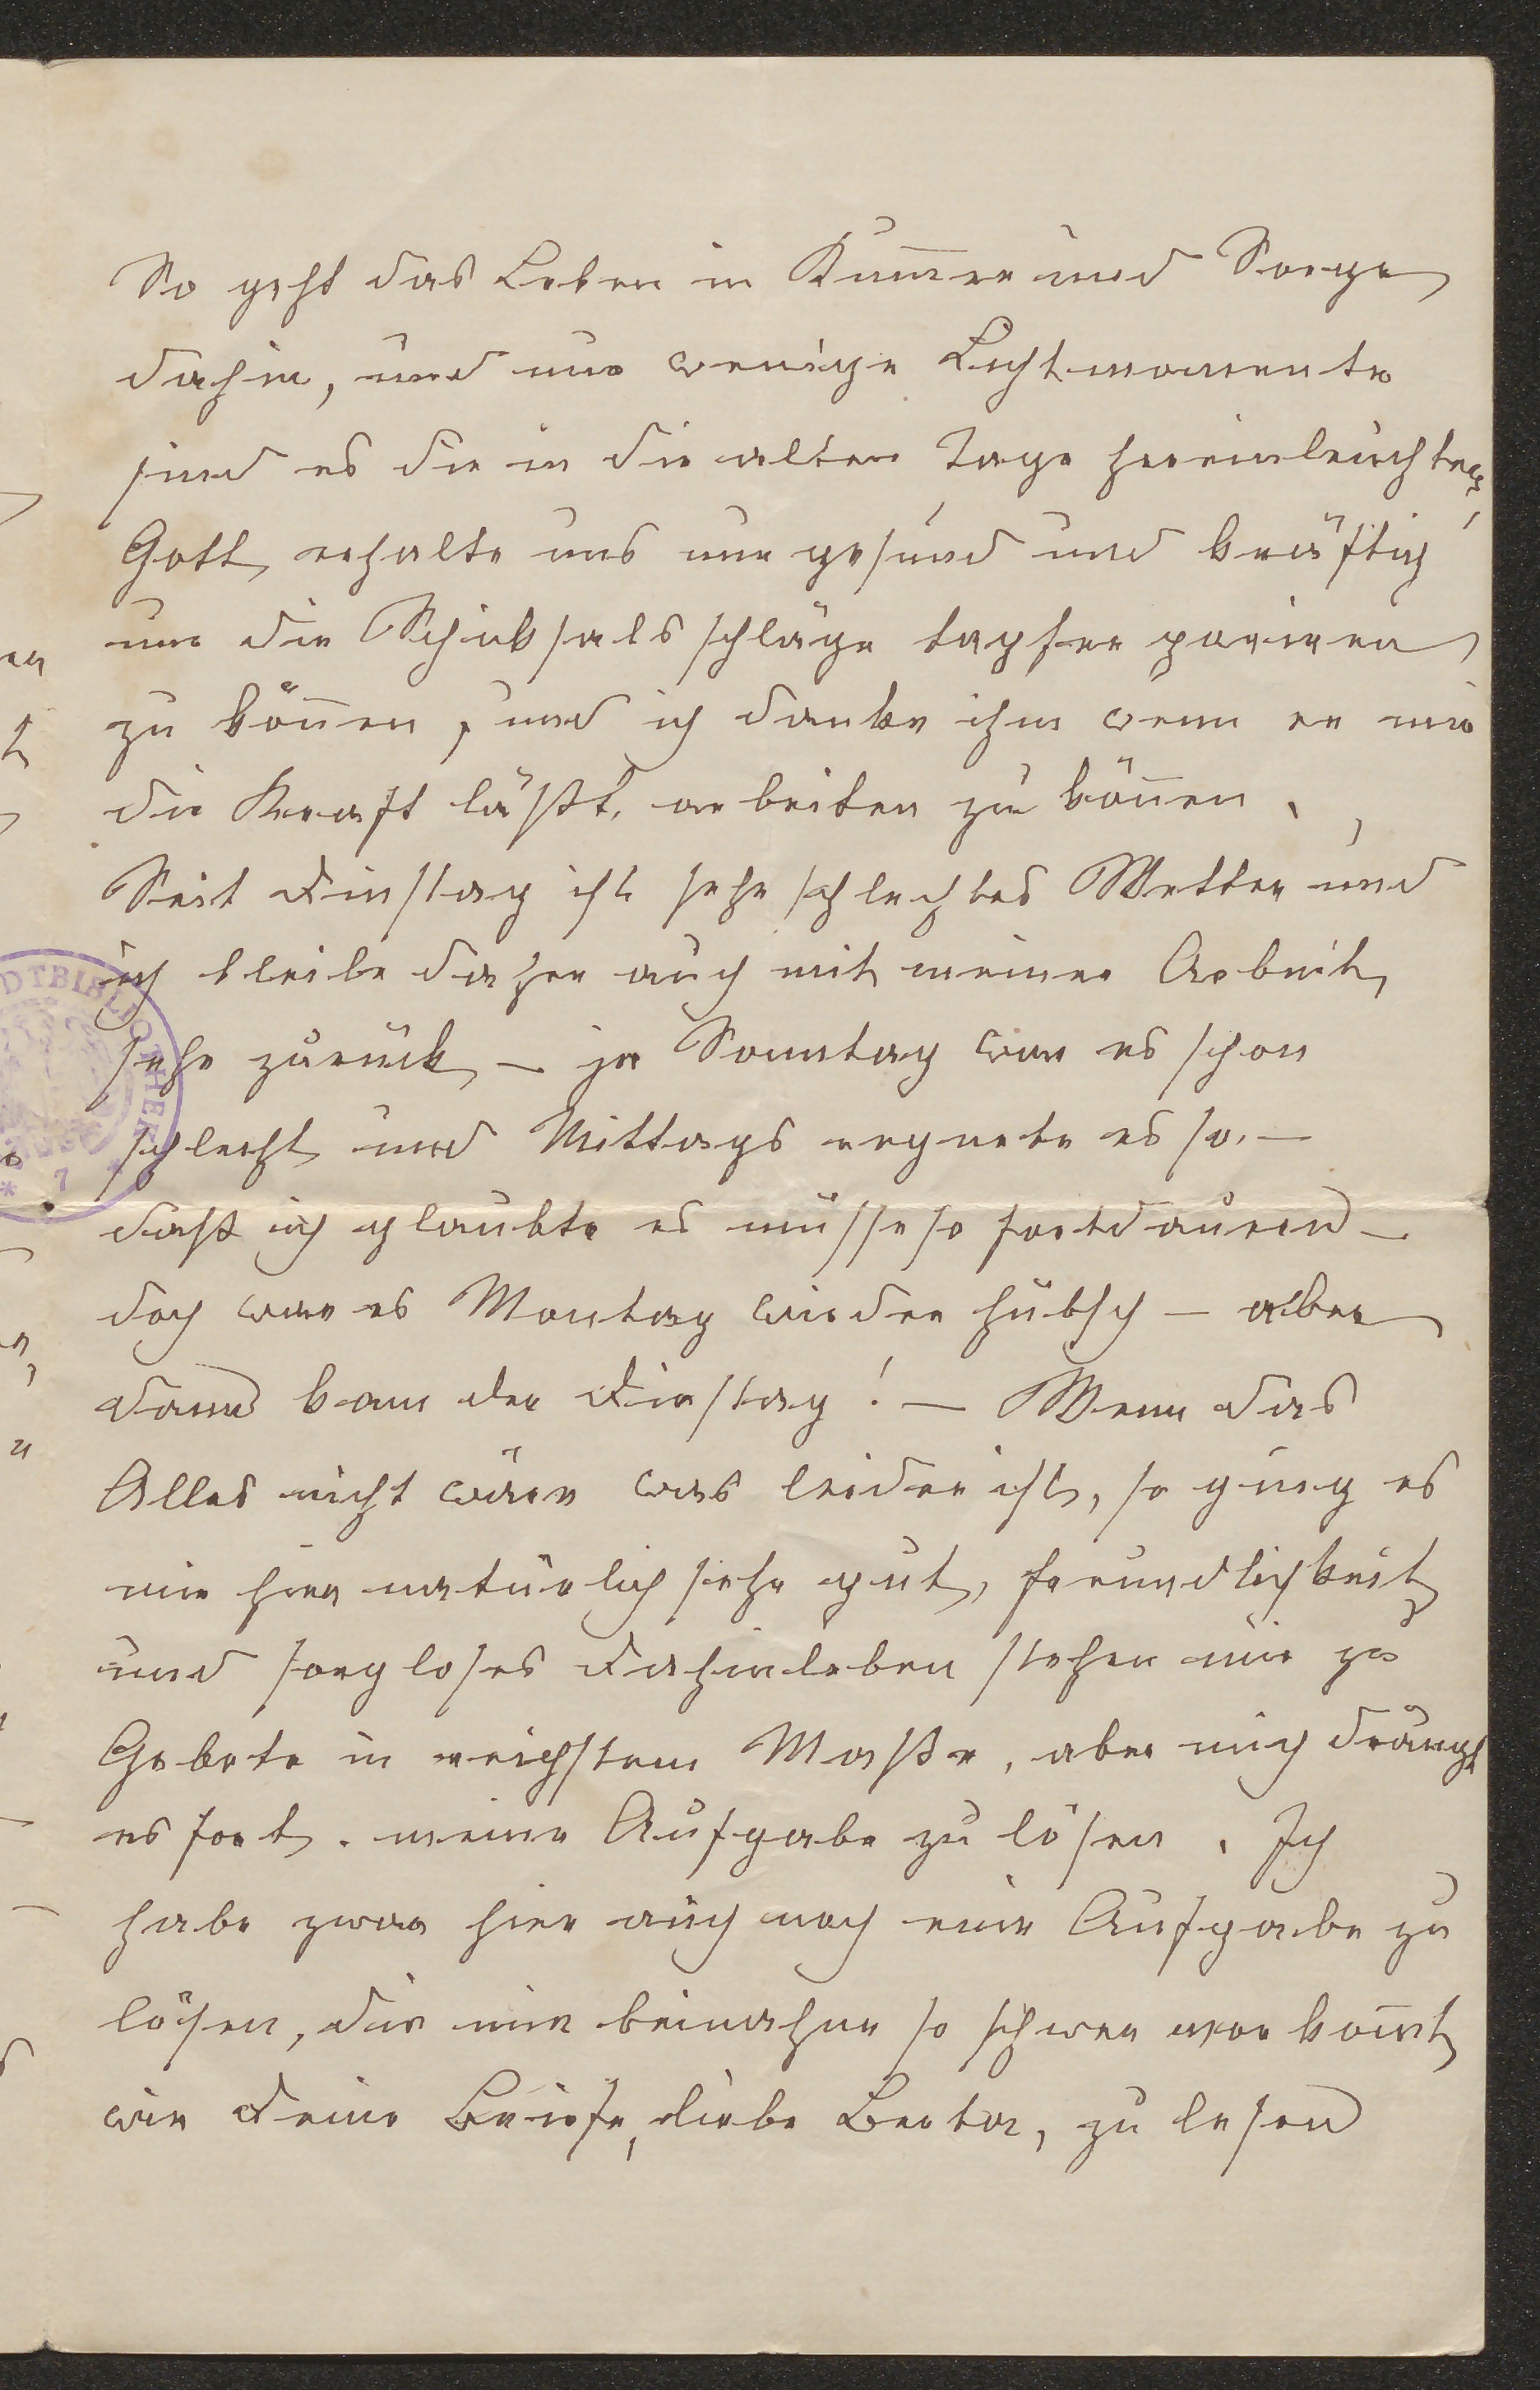 So geht das Leben in Kum̅er und Sorgen
dahin, und nur wenige Lichtmomente
sind es die in die alten Tage hereinleuchten,
Gott erhalte uns nur gesund und kräftig
um die Schiksalsschläge tapfer pariren
zu kön̅en, und ich danke ihm wenn er mir
die Kraft läßt, arbeiten zu kön̅en.
Seit Dinstag ist sehr schlechtes Wetter und
ich bleibe daher auch mit meiner Arbeit
sehr zurück – ja Sonntag war es schon
schlecht und Mittags regnete es so, –
daß ich glaubte es müsse so fortdauern –
doch war es Montag wieder hübsch – aber
dann kam der Dinstag! – Wenn das
Alles nicht wäre was leider ist, so ging es
mir hier natürlich sehr gut, Freundlichkeit
und sorgloses Dahinleben stehen mir zu
Gebote in reichstem Maße, aber mich drängt
es fort, meine Aufgabe zu lösen. Ich
habe zwar hier auch noch eine Aufgabe zu
lösen, die mir beinahe so schwer vorkom̅t
wie Deine Briefe, liebe Berta, zu lesen
DTBIBLIOTHEK
* 7 *